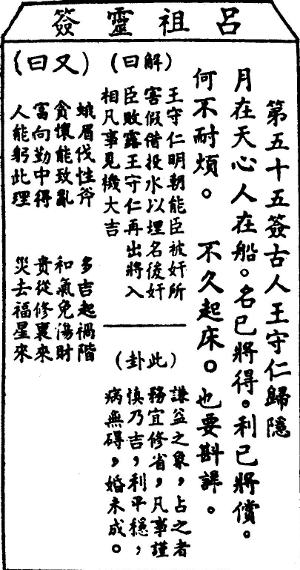 呂祖靈簽
第五十五簽古人王守仁歸隱
月在天心人在船。名已將得。利已將償。
何不耐煩。 不久起床。也要斟詳。
(解曰)
王守仁明朝能臣被奸所
害假借投水以埋名後奸
臣敗露王守仁再出將入
相凡事見機大吉
(此卦)
謙益之象,占之者
務宜修省,凡事謹
慎乃吉,利平穩,
病無碍,婚未成。
(又曰)
蛾眉伐性斧 多吉起禍階
貪懷能致亂 和氣免傷財
富向勤中得 貴從修裏來
人能躬此理 災去福星來